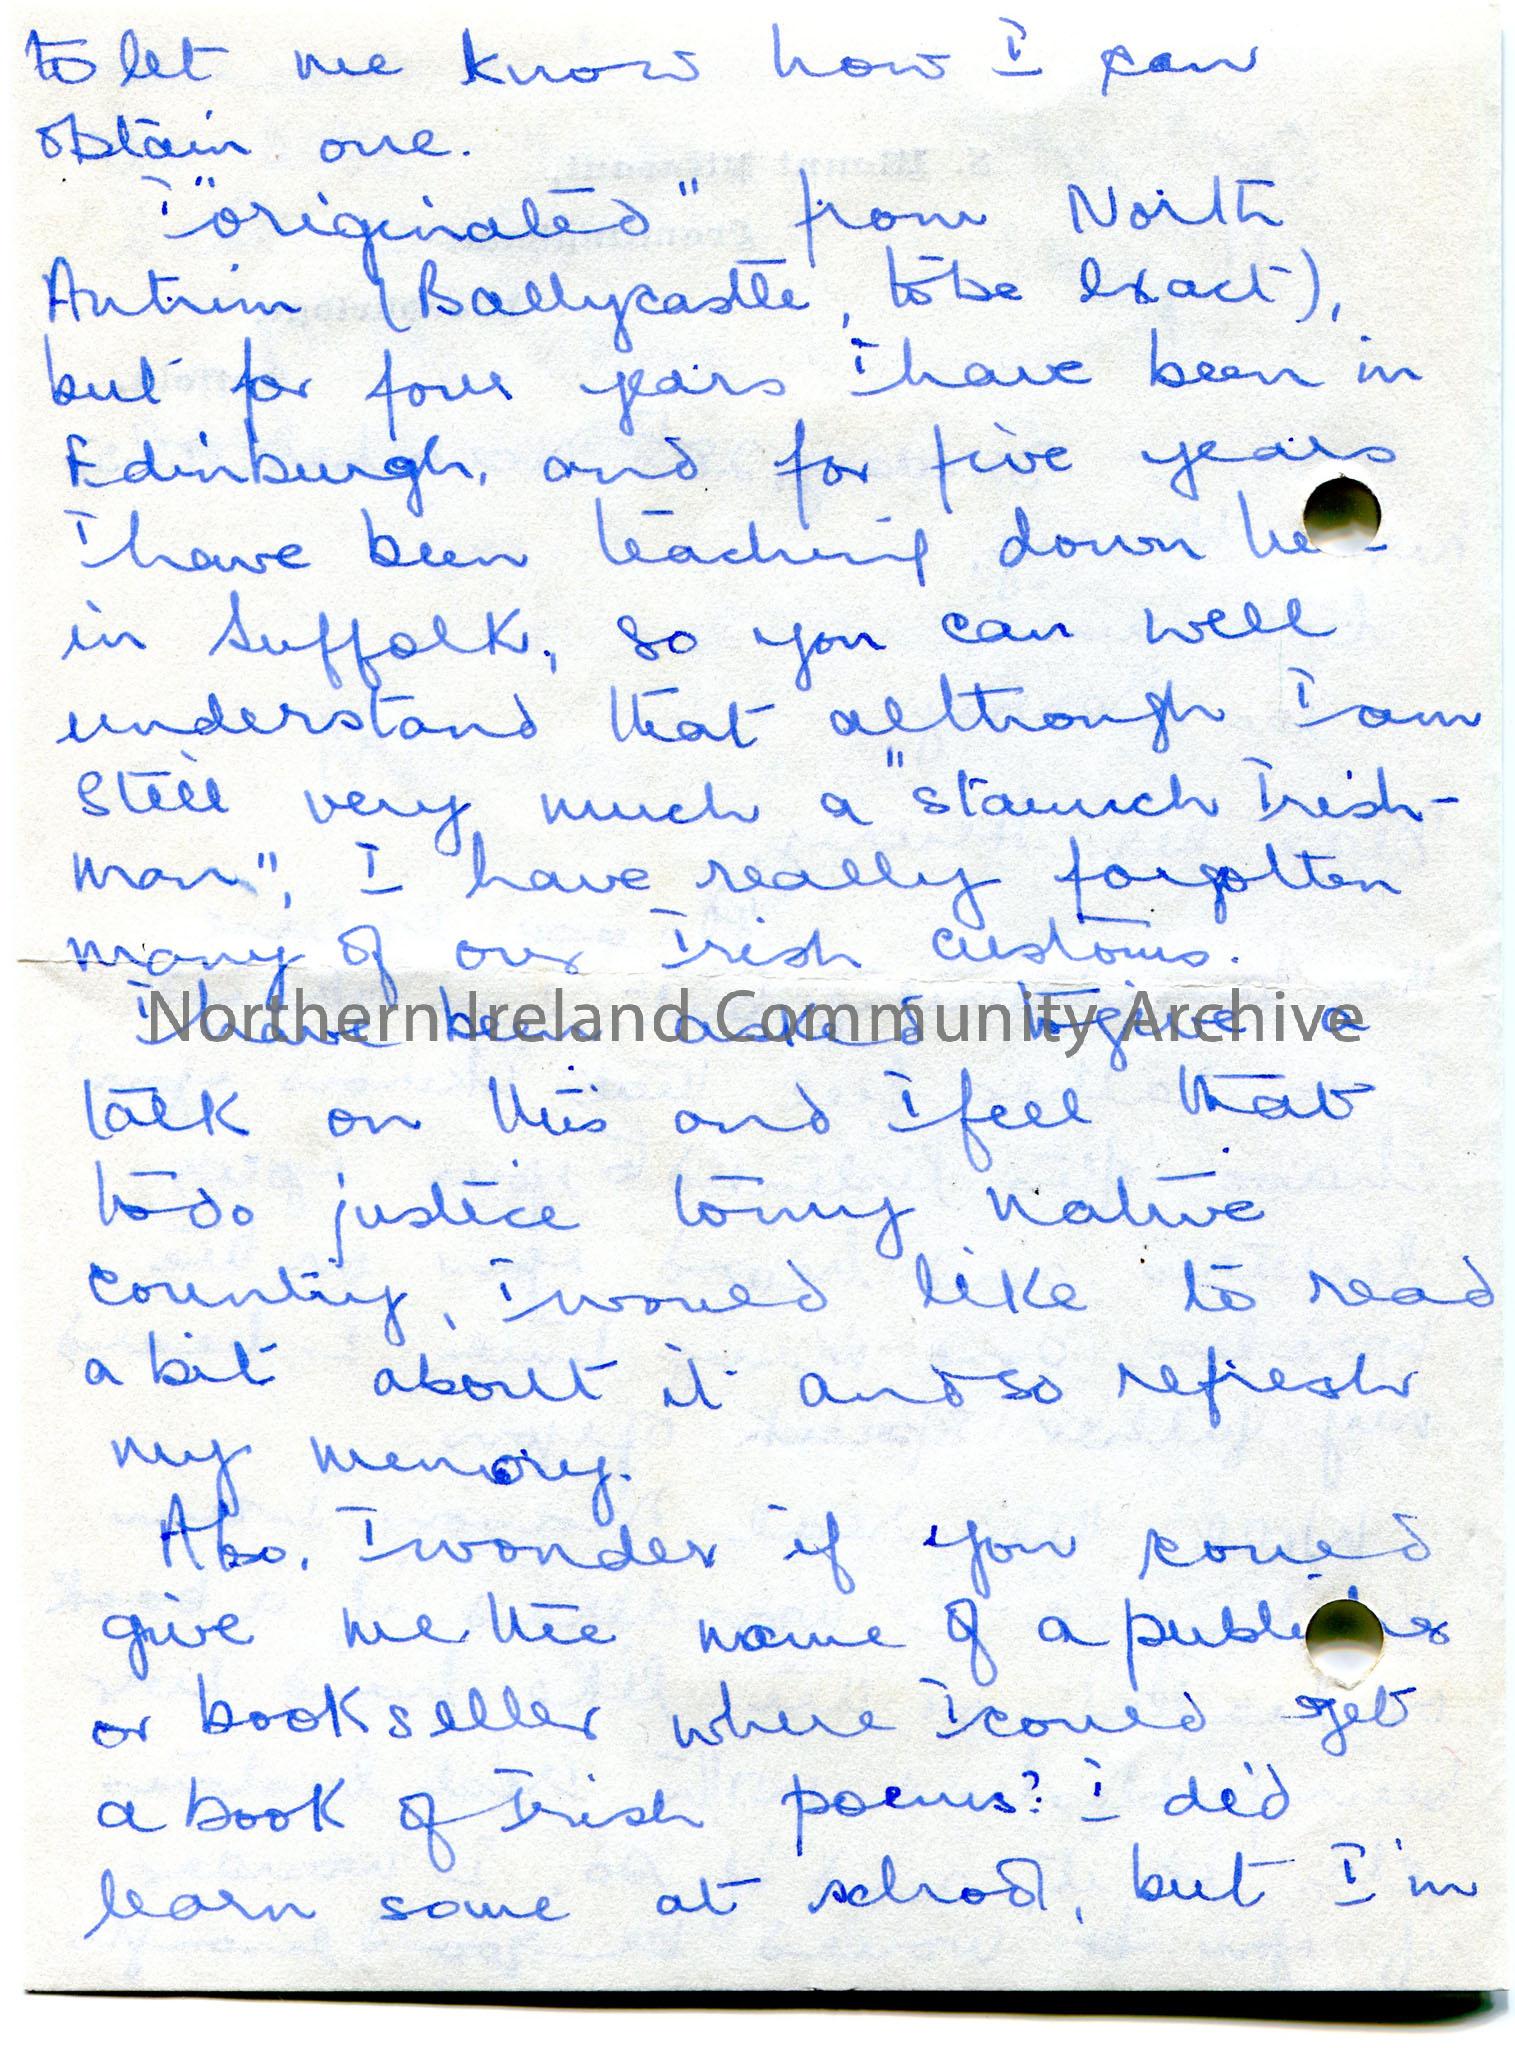 to let me know how I can
obtain one.
I "originated" from North
Antrim (Ballycastle, to be exact),
but for four years I have been in
Edinburgh, and for five years
I have been teaching down here
in Suffolk, so you can well
understand that although I am
still very much a "staunch Irish-
man", I have really forgotten
many of our Irish customs.
Northern Ireland Community Archive
I have been asked to give a
talk on this and I feel that
to do justice to my native
country, I would like to read
a bit about it and so refresh
my memory.
Also, I wonder if you could
give me the name of a publisher
or bookseller where I could get
a book of Irish poems? I did
learn some at school, but I'm